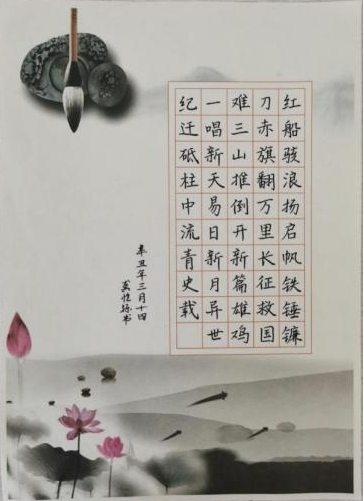 红船骇浪扬启帆铁锤镰
刀赤旗翻万里长征救国
难三山推倒开新篇雄鸡
一唱新天易日新月异世
纪迁砥柱中流青史载
辛丑年三月十四
书